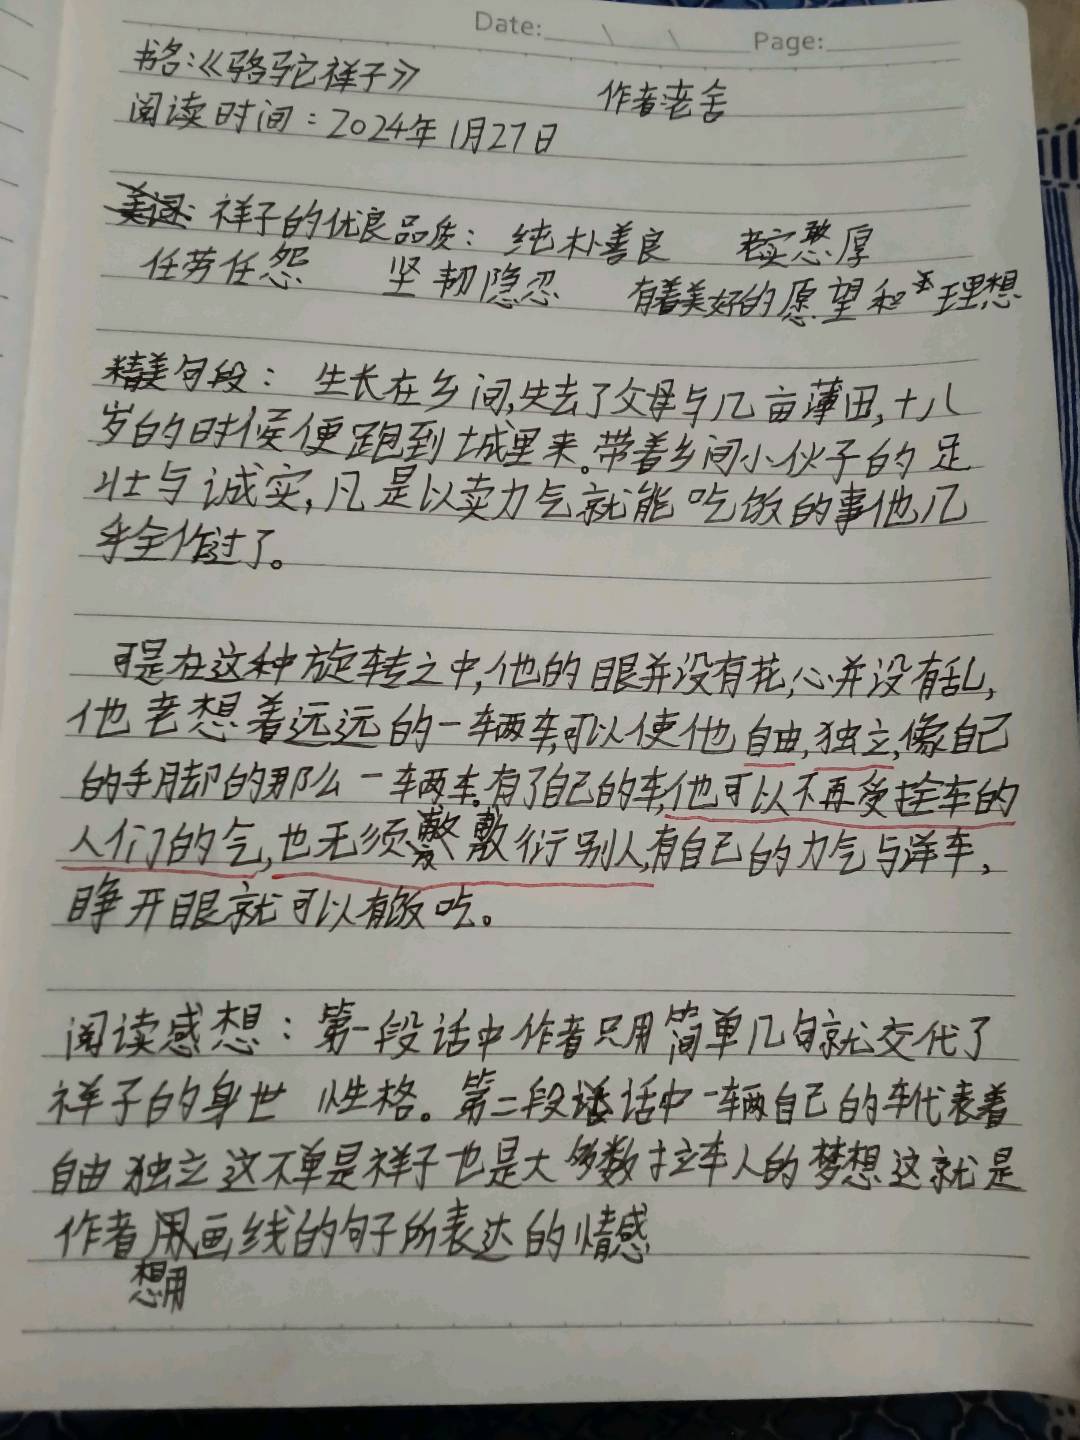 Date: \ \ Page:
书名:《骆驼祥子》 作者老舍
阅读时间:2024年1月27日
祥子的优良品质: 纯朴善良 老实憨厚
任劳任怨 坚韧隐忍 有着美好的愿望和理想
精美句段: 生长在乡间,失去了父母与几亩薄田,十八
岁的时候便跑到城里来。带着乡间小伙子的足
壮与诚实,凡是以卖力气就能吃饭的事他几
乎全作过了。
可是在这种旋转之中,他的眼并没有花,心并没有乱,
他老想着远远的一辆车,可以使他自由,独立,像自己
的手脚的那么一辆车。有了自己的车,他可以不再受拴车的
人们的气,也无须敷衍别人,有自己的力气与洋车,
睁开眼就可以有饭吃。
阅读感想: 第一段话中作者只用简单几句就交代了
祥子的身世 性格。第二段话中一辆自己的车代表着
自由 独立 这不单是祥子也是大多数拉车人的梦想这就是
作者想用画线的句子所表达的情感